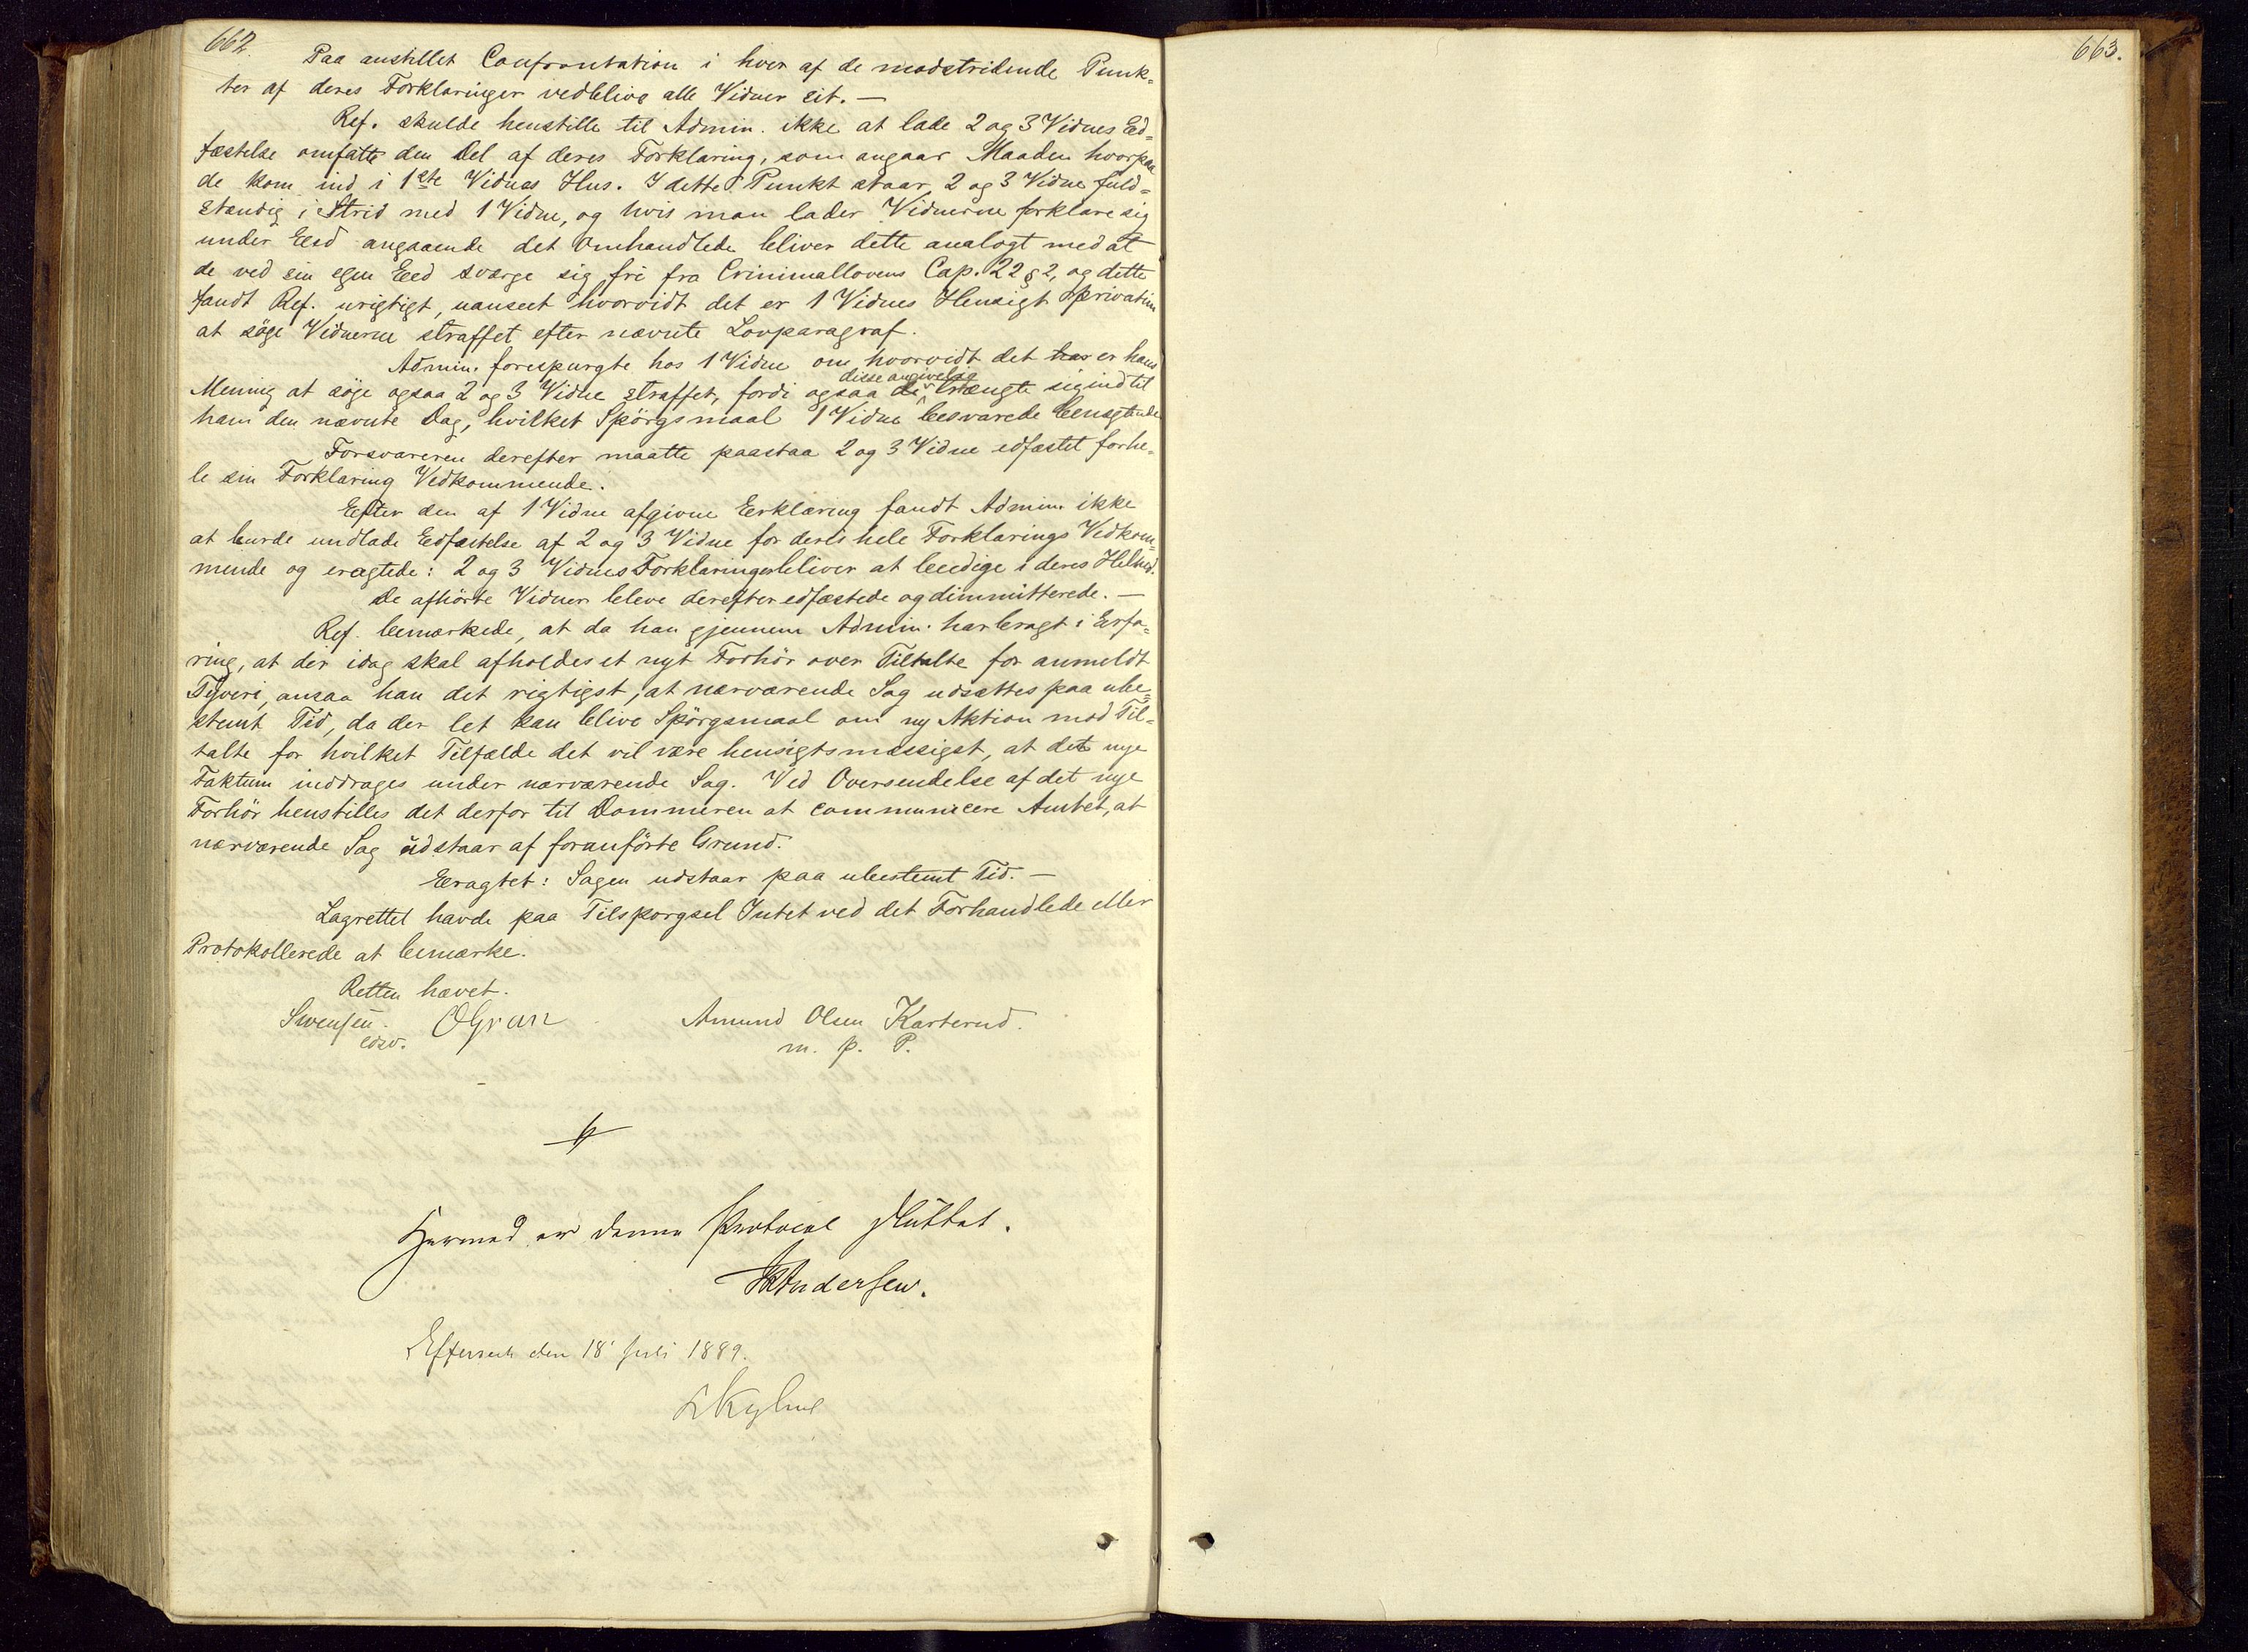 662.
Paa anstillet Confrontation i hver af de modstridende Punk-
ter af deres Forklaringer vedblive alle Vidner sit. —
Ref. skulde henstille til Admin. ikke at lade 2 og 3 Vidnes Ed-
fæstelse omfatte den Del af deres Forklaring, som angaar Maaden hvorpaa
de kom ind i 1ste Vidnes Hus. I dette Punkt staar 2 og 3 Vidne fuld-
stændig i Strid med 1 Vidne, og hvis man lader Vidnerne forklare sig
under Eed angaaende det Omhandlede bliver dette analogt med at
de ved sin egen Eed sværge sig fri fra Criminallovens Cap. 22 § 2, og dette
fandt Ref. urigtigt, uanseet hvorvidt det er 1 Vidnes Hensigt privatim
at söge Vidnerne straffet efter nævnte Lovparagraf.
Admin. forespurgte hos 1 Vidne om hvorvidt det har er hans
disse angivelig
Mening at söge ogsaa 2 og 3 Vidne straffet, fordi ogsaa de trængte sig ind til
ham den nævnte Dag, hvilket Spörgsmaal 1 Vidne besvarede benegtende
Forsvareren derefter maatte paastaa 2 og 3 Vidne edfæstet for he-
le sin Forklaring Vedkommende.
Efter den af 1 Vidne afgivne Erklæring fandt Admin. ikke
at burde undlade Edfæstelse af 2 og 3 Vidne for deres hele Forklarings Vedkom-
mende og eragtede: 2 og 3 Vidnes Forklaringer bliver at beedige i deres Helhed.
De afhörte Vidner bleve derefter edfæstede og dimmitterede. —
Ref. bemærkede, at da han gjennem Admin. har bragt i Erfa-
ring, at der idag skal afholdes et nyt Forhör over Tiltalte for anmeldt
Tyveri, ansaa han det rigtigst, at nærværende Sag udsættes paa ube-
stemt Tid, da der let kan blive Spörgsmaal om ny Aktion mod Til-
talte for hvilket Tilfælde det vil være hensigtsmæssigst, at det nye
Faktum inddrages under nærværende Sag. Ved Oversendelse af det nye
Forhör henstilles det derfor til Dommeren at communicere Amtet, at
nærværende Sag udstaar af foranförte Grund.
Eragtet: Sagen udstaar paa ubestemt Tid. —
Lagrettet havde paa Tilspørgsel Intet ved det Forhandlede eller
Protokollerede at bemærke.
Retten hævet.
Swensen. OGran Amund Olsen Karterud.
edsv. m. p. P.
Hermed er denne Protocol sluttet.
Andersen.
Efterseet den 18 Juli 1889.
663.